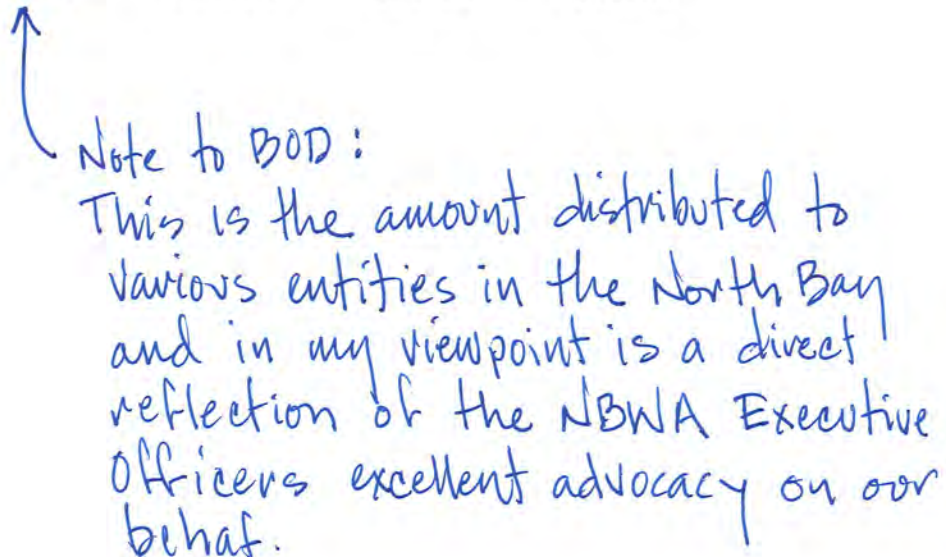 Note to BOD:
This is the amount distributed to
various entities in the North Bay
and in my viewpoint is a direct
reflection of the NBWA Executive
Officers excellent advocacy on our
behaf.